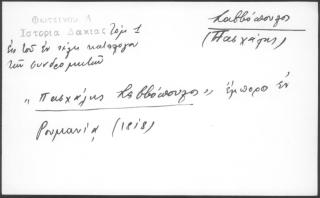 Φωτεινού 1
Ιστορία Δακίας Τόμ 1
Εκ του εν τέλει καταλόγου
των συνδρομητών
Σαββόπουλος
(Πασχάλης)
"Πασχάλης Σαββόπουλος", έμπορος εν
Ρουμανία (1818)